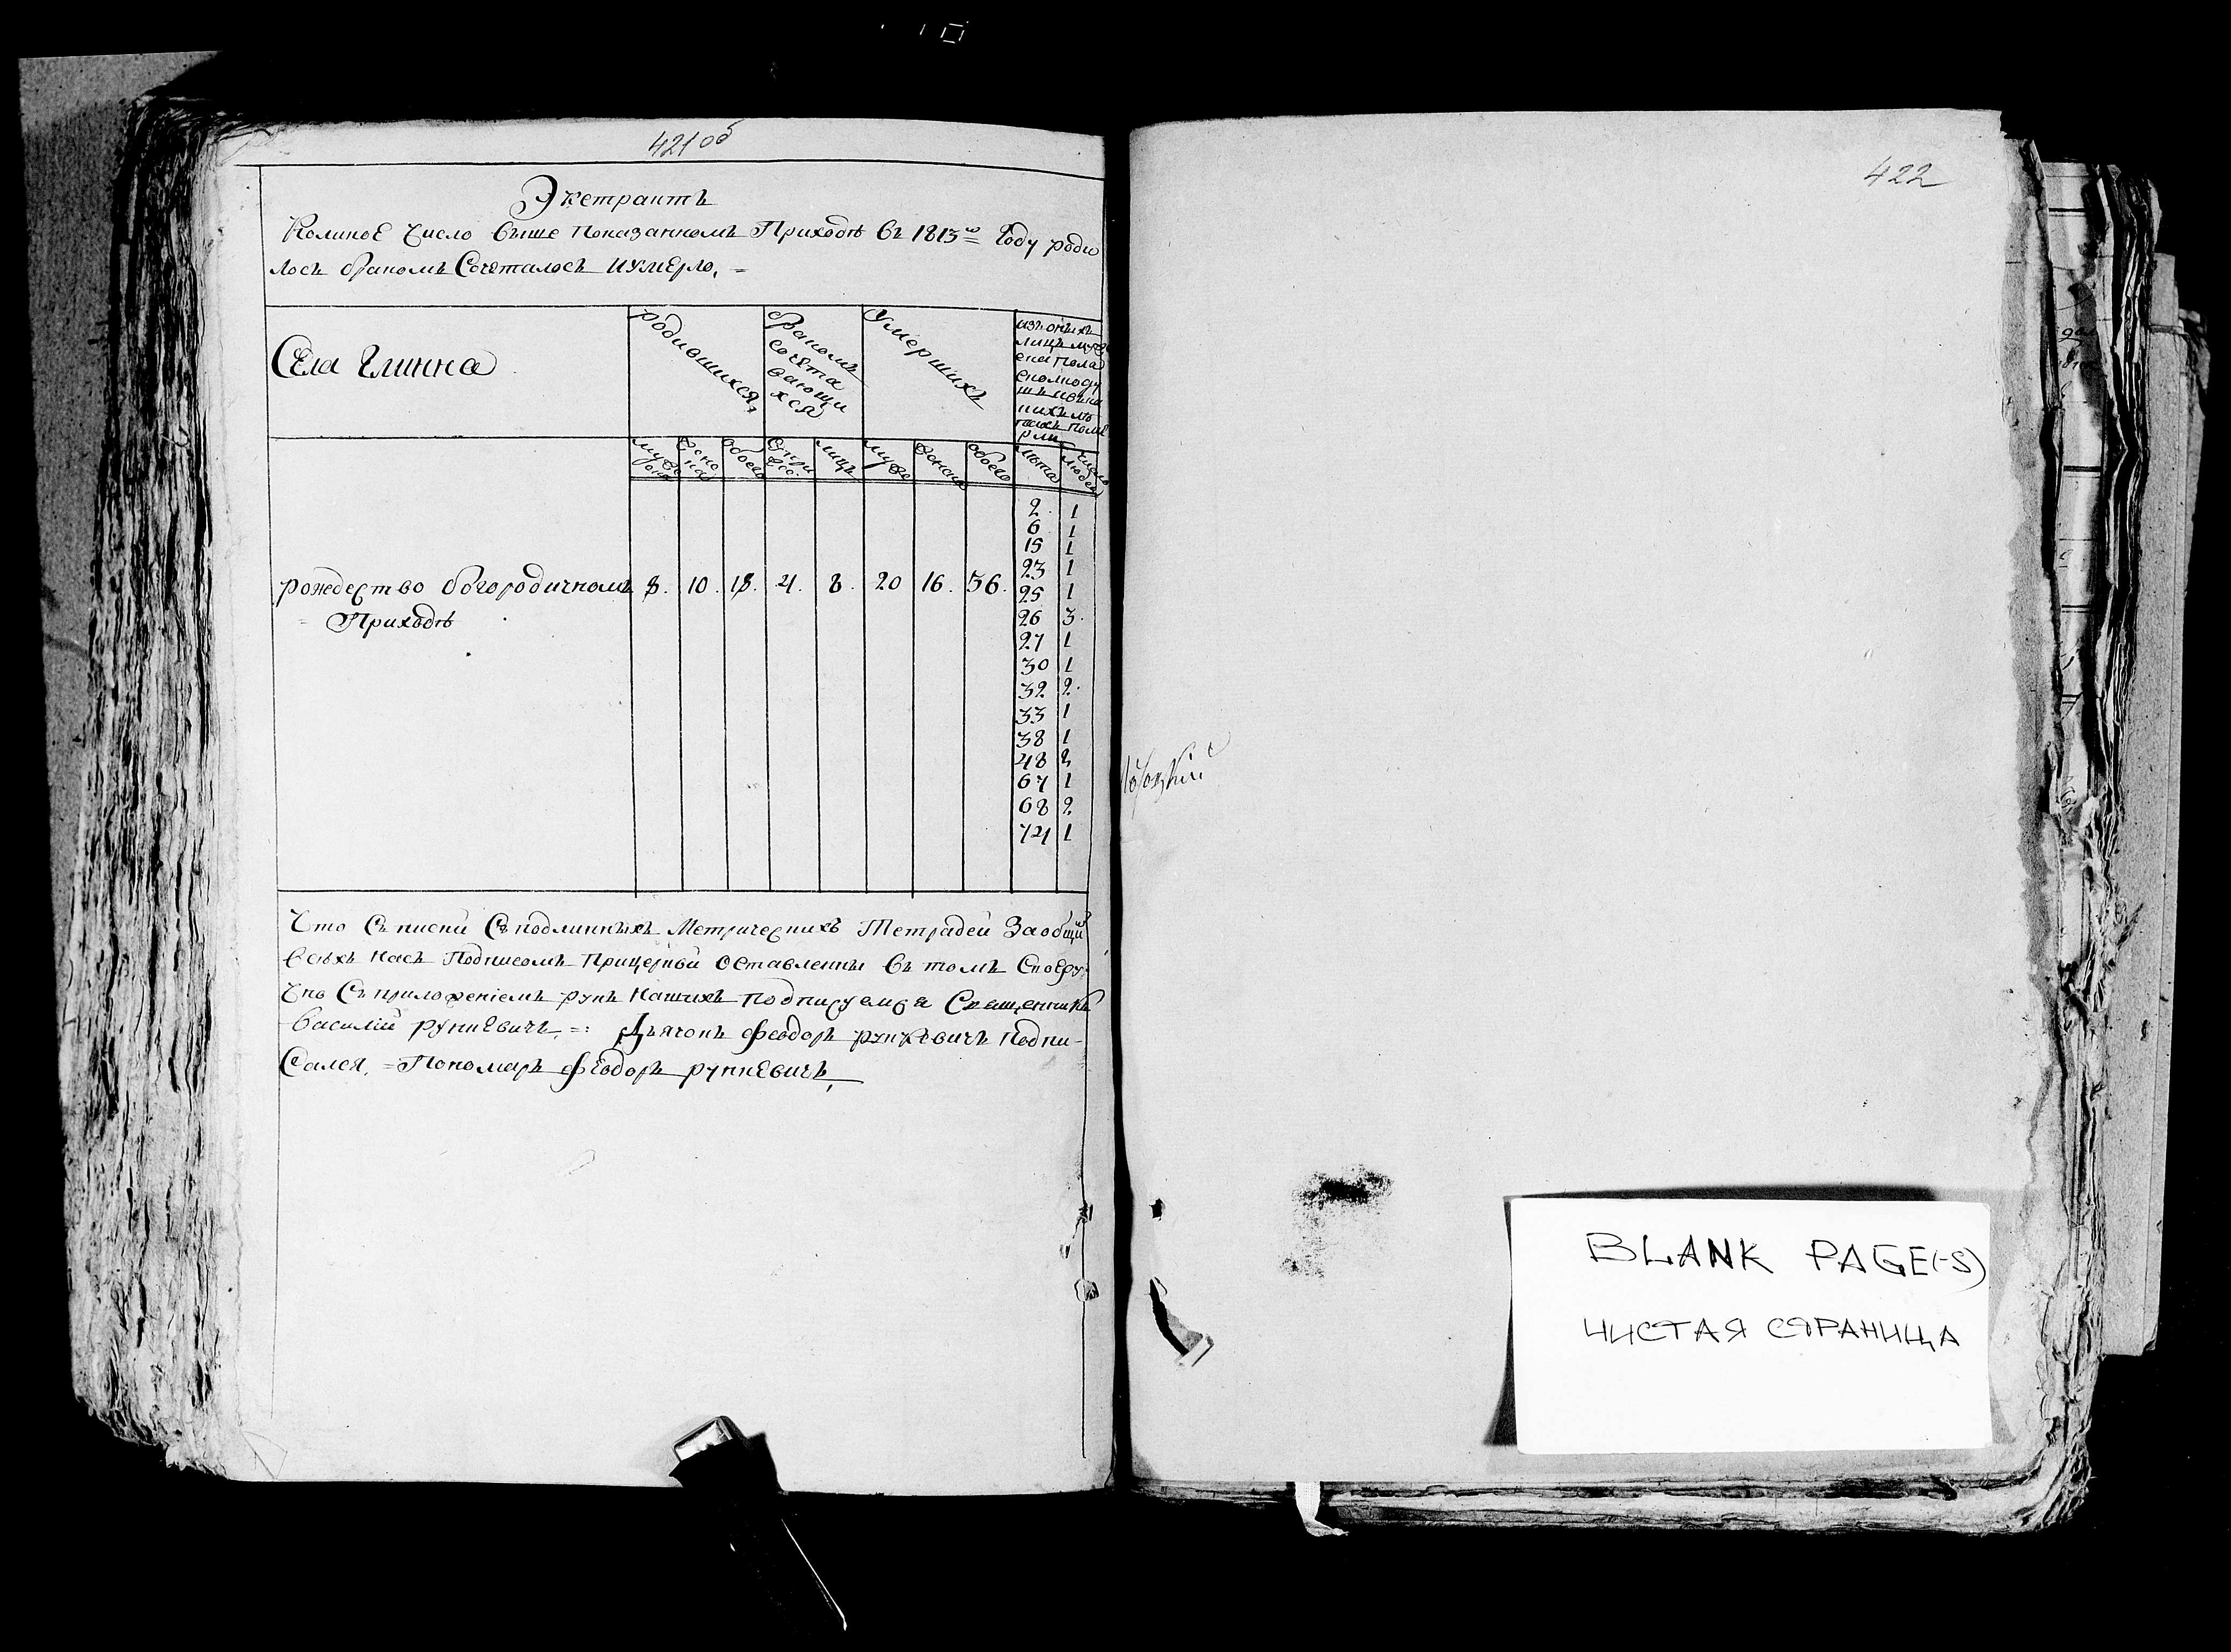 421 об
Экстрактъ
Коликое Число выше показанномъ Приходѣ въ 1813м Году роди
лось бракомъ Сочеталось и умерло. =
Села Глинна
родившихся,
бракомъ
сочета
вающи
хся
Умершихъ
изъ онихъ
лицъ муже
ска пола
рли
муже
ска
женска
обоего
лицъ
муже
женска
обоего
лѣта
число
людей
рождество богородичномъ 8. 10. 18. 4. 8. 20 16. 36.
= Приходѣ
2. 1
6 1
15 1
23 1
25 1
26 3.
27 1
30 1
32 2.
33 1
38 1
48 2
67 1
68 2
74 1
Что Съ писки Съ подлинныхъ Метрическихъ Тетрадей За общим
всѣхъ насъ Подписомъ При церкви оставленны въ томъ Своеру
чно Съ приложеніемъ рукъ нашихъ подписуемся Священникъ
Василій рункевичъ =: Дьячокъ Феодоръ рункевичъ Подпи-
Сался. = Пономаръ Феодоръ рункевичъ
422
BLANK PAGE(-S)
ЧИСТАЯ СТРАНИЦА